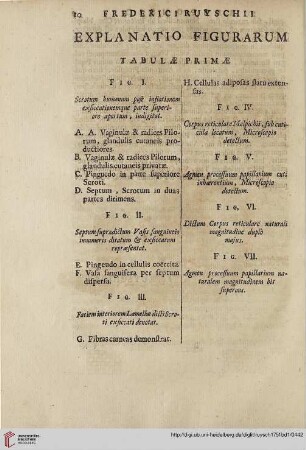 10 FREDERICI RUYSCHII
EXPLANATIO FIGURARUM
TABULÆ PRIMÆ
FIG. I.
Scrotum humanum post inflationem
exsiccationemque parte superi-
ore apertum, indigitat.
A. A. Vaginulæ & radices Pilo-
rum, glandulis cutaneis pro-
ductiores.
B. Vaginulæ & radices Pilorum,
glandulis cutaneis privatæ.
C. Pinguedo in parte superiore
Scroti.
D. Septum, Scrotum in duas
partes dirimens.
FIG. II.
Septum supradictum Vasis sanguineis
innumeris ditatum & exsiccatum
repræsentat.
E. Pinguedo in cellulis coërcita.
F. Vasa sanguifera per septum
dispersa.
FIG. III.
Faciem interiorem Lamellæ
exsiccati denotat.
G. Fibras carneas demonstrat.
H. Cellulas adiposas flatu exten-
sas.
FIG. IV.
Corpus reticulare Malpichii, sub cuti-
cula locatum, Microscopio
detectum.
FIG. V.
Agmen processuum papillarium cuti
inhærentium, Microscopio
detectum.
FIG. VI.
Dictum Corpus reticulare naturali
magnitudine duplo
majus.
FIG. VII.
Agmen processuum papillarium na-
turalem magnitudinem bis
superans.